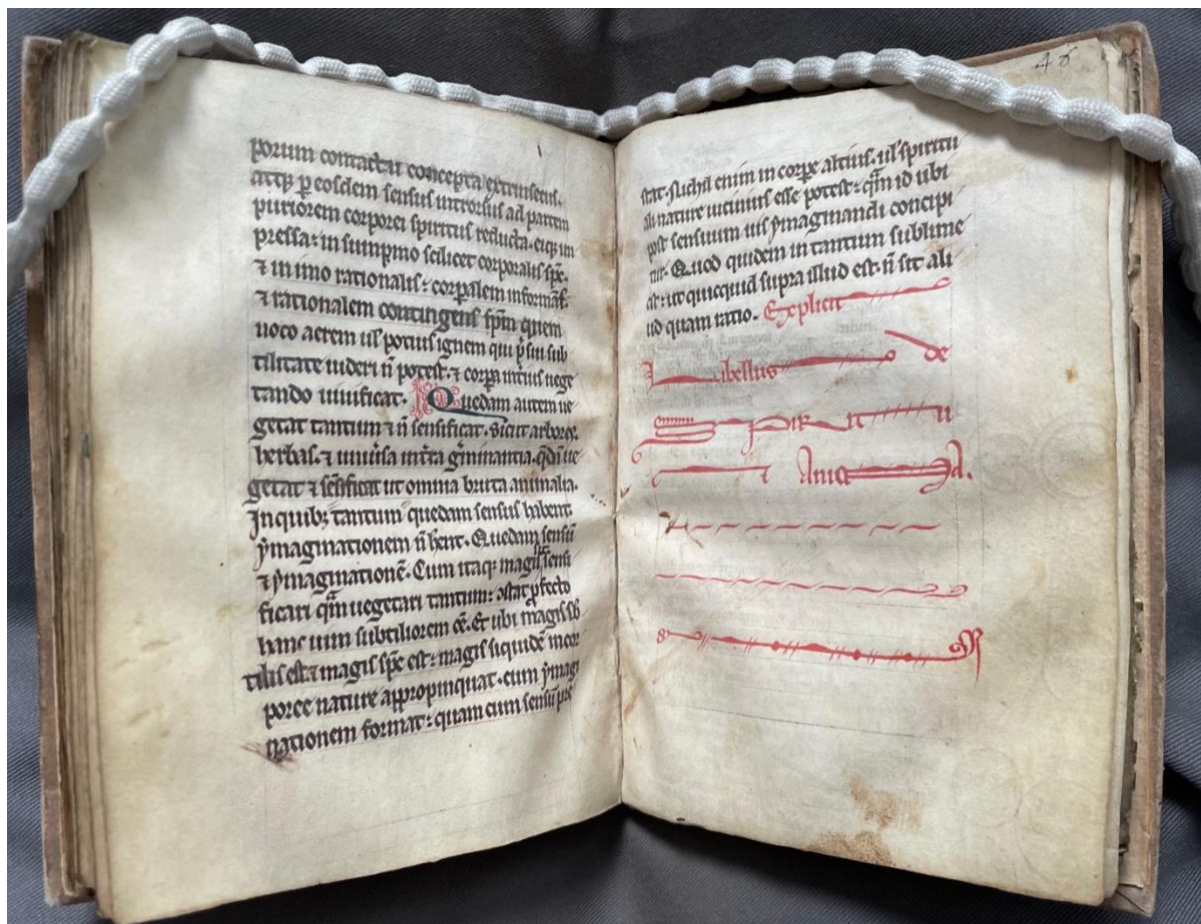 porum contactu concepta extrinsecus.
atq; p eosdem sensus introrsus ad partem
puriorem corporei spiritus reducta. eiq; im
pressa: in summo scilicet corporalis spc̄.
⁊ in imo rationalis: corpalem informās.
⁊ rationalem contingens spm̄ quem
uoco aerem ul̓ potius ignem qui p̄ sui sub
tilitate uideri n̄ potest. ⁊ corpa intius uege
tando uiuificat. Quedam autem ue
getat tantum ⁊ n̄ sensificat. sicut arbores.
herbas. ⁊ uniuīsa in tr̄a gīminantia. qdā ue
getat ⁊ sēsificat ut omnia bruta animalia.
In quib; tantum quedam sensus habent.
ẏmaginationem n̄ hent. Quedam sensū
⁊ ẏmaginationē. Cum itaq; magis sit sensi
ficari qm̄ uegetari tantum: ɔstat pfecto
hanc uim subtiliorem eē. Et ubi magis sb
tilis est ⁊ magis spc̄ est: magis siquidē incor
poree nature appropinquat. cum ẏmagi
nationem format: quam cum sensū pre
48
stat. Nichil enim in corpe altius. ul̓ spiritu
ali nature uicinius esse potest: qm̄ id ubi
post sensuum uis ẏmaginandi concipi
tur. Quod quidem in tantum sublime
est: ut quicquid supra illud est. n̄ sit ali
ud quam ratio. Explicit
Libellus de
spirit u
et AnimA.